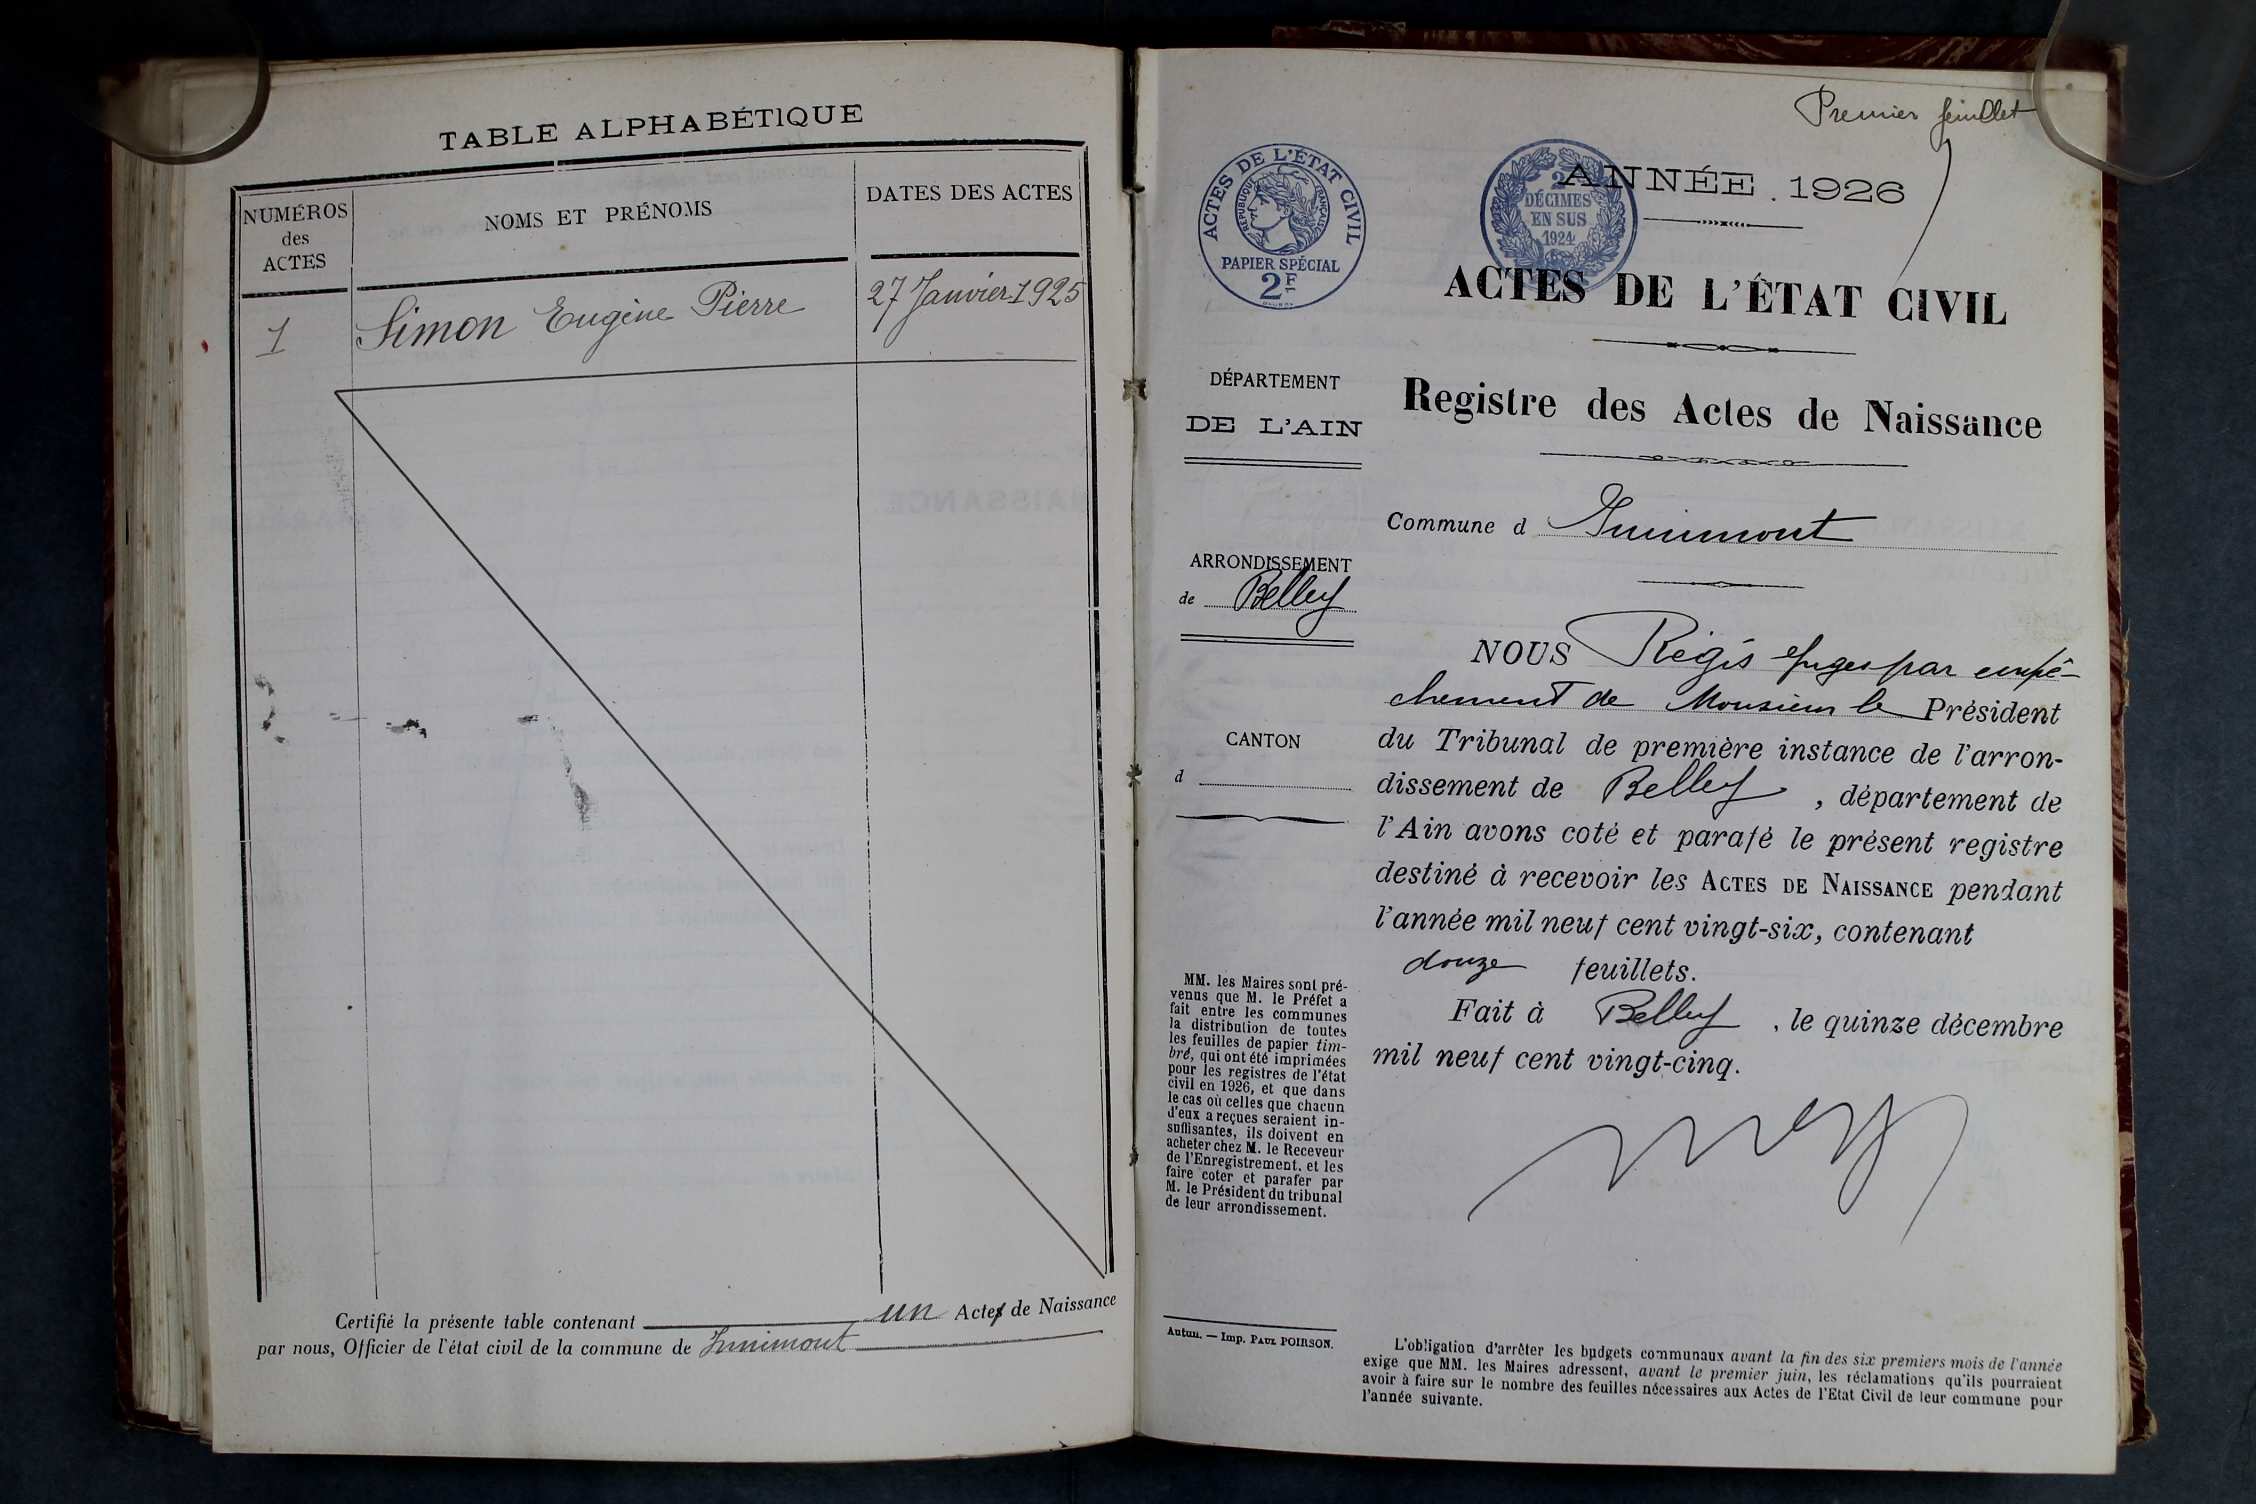 TABLE ALPHABÉTIQUE
NUMÉROS
des
ACTES
NOMS ET PRÉNOMS
DATES DES ACTES
1
Simon Eugène Pierre
27 Janvier 1925
Certifié la présente table contenant un Actes de Naissance
par nous, Officier de l'état civil de la commune de Innimont
Premier feuillet
ACTES DE L'ÉTAT CIVIL
RÉPUBLIQUE FRANÇAISE
PAPIER SPÉCIAL
2F
2
DÉCIMES
EN SUS
1924
ANNÉE 1926
ACTES DE L'ÉTAT CIVIL
Registre des Actes de Naissance
DÉPARTEMENT
DE L'AIN
Commune d Innimont
ARRONDISSEMENT
de Belley
CANTON
d
NOUS Régis Juge par empê-
chement de Monsieur le Président
du Tribunal de première instance de l'arron-
dissement de Belley, département de
l'Ain avons coté et parafé le présent registre
destiné à recevoir les ACTES DE NAISSANCE pendant
l'année mil neuf cent vingt-six, contenant
douze feuillets.
Fait à Belley, le quinze décembre
mil neuf cent vingt-cinq.
MM. les Maires sont pré-
venus que M. le Préfet a
fait entre les communes
la distribution de toutes
les feuilles de papier tim-
bré, qui ont été imprimées
pour les registres de l'état
civil en 1926, et que dans
le cas où celles que chacun
d'eux a reçues seraient in-
suffisantes, ils doivent en
acheter chez M. le Receveur
de l'Enregistrement, et les
faire coter et parafer par
M. le Président du tribunal
de leur arrondissement.
Autun. — Imp. PAUL POIRSON.
L'obligation d'arrêter les budgets communaux avant la fin des six premiers mois de l'année
exige que MM. les Maires adressent, avant le premier juin, les réclamations qu'ils pourraient
avoir à faire sur le nombre des feuilles nécessaires aux Actes de l'Etat Civil de leur commune pour
l'année suivante.